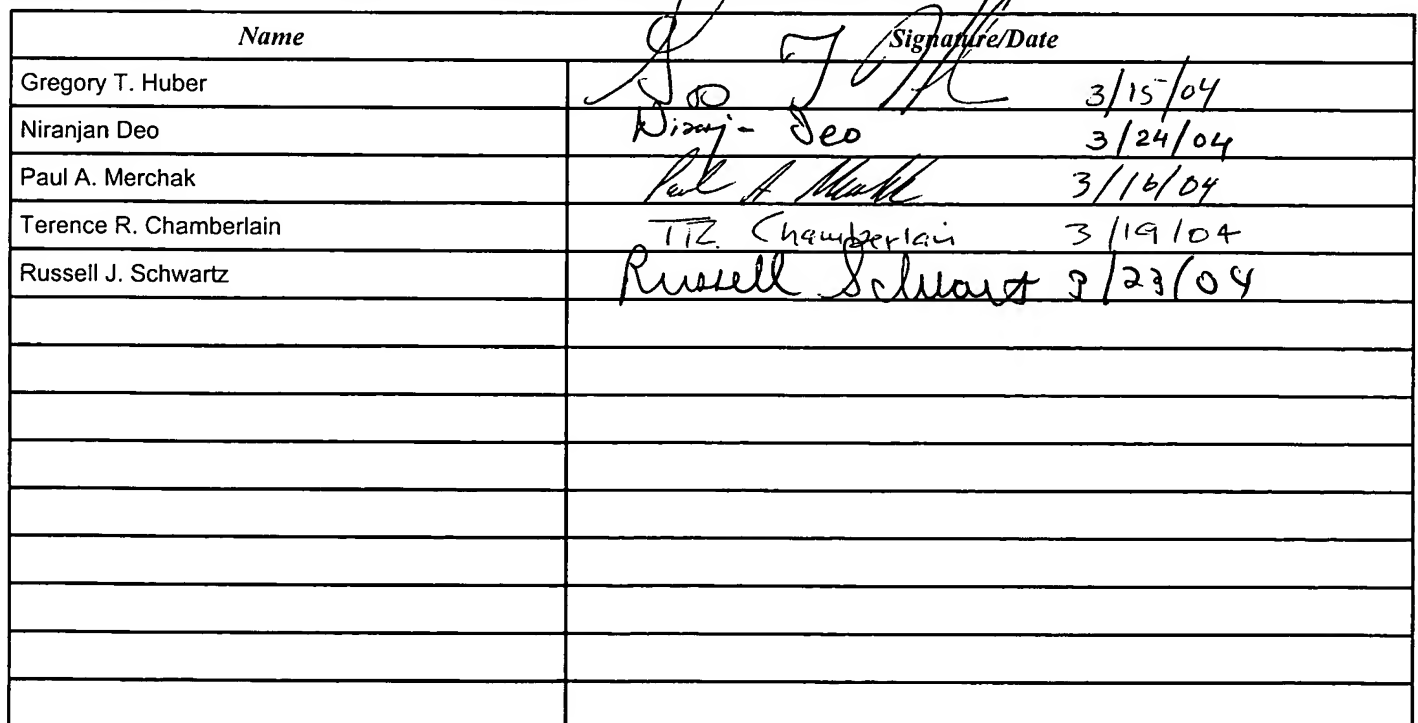 Name Signature/Date
Gregory T. Huber 3/15/04
Niranjan Deo Niranj- Deo 3/24/04
Paul A. Merchak Paul A 3/16/04
Terence R. Chamberlain TR Chamberlain 3/19/04
Russell J. Schwartz Russell Schwart 3/23/04